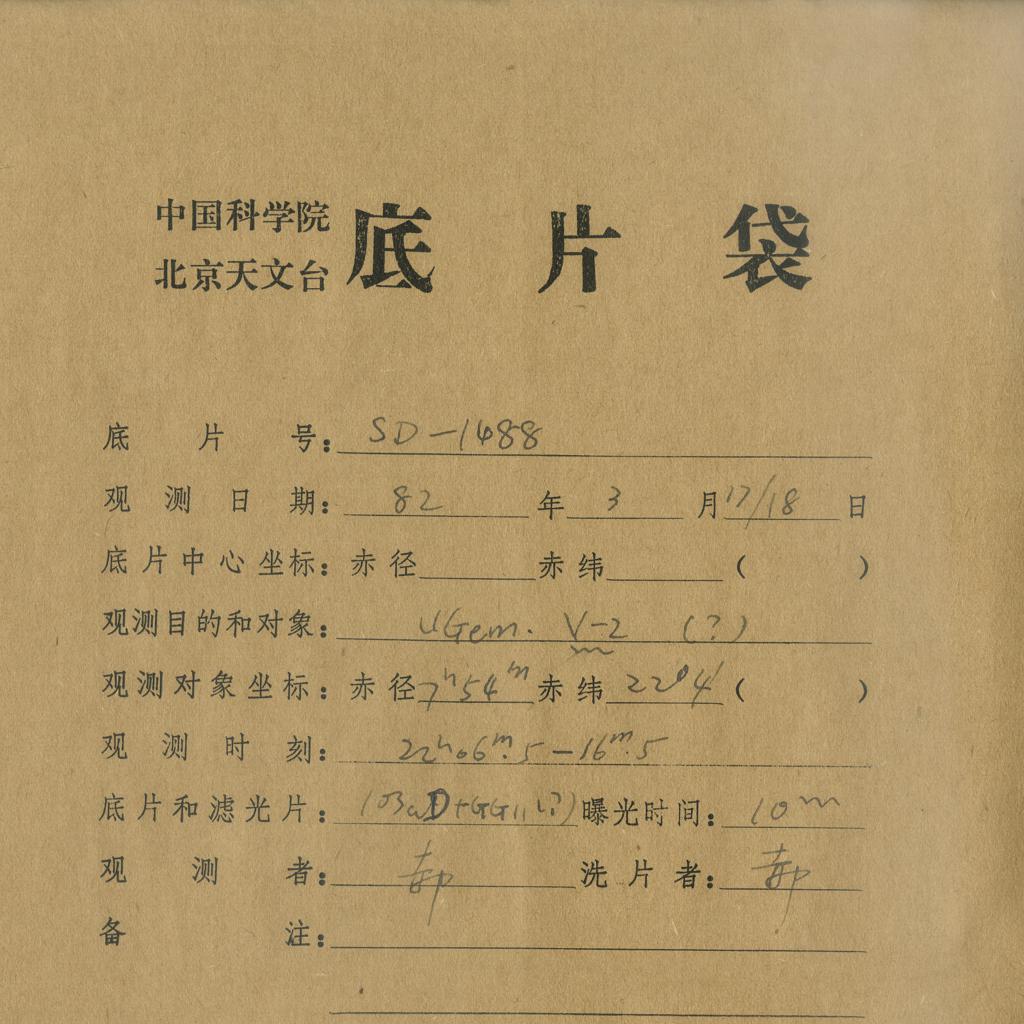 中国科学院
北京天文台
底片袋
底片号: SD-1488
观测日期: 82 年 3 月 17/18 日
底片中心坐标: 赤径 赤纬 ( )
观测目的和对象: UGem. V-2 (?)
观测对象坐标: 赤径 7ʰ54ᵐ 赤纬 22°04′ ( )
观测时刻: 22ʰ06ᵐ.5-16ᵐ.5
底片和滤光片: 103aD+GG11(?) 曝光时间: 10ᵐ
观测者: 郝 洗片者: 郝
备注: